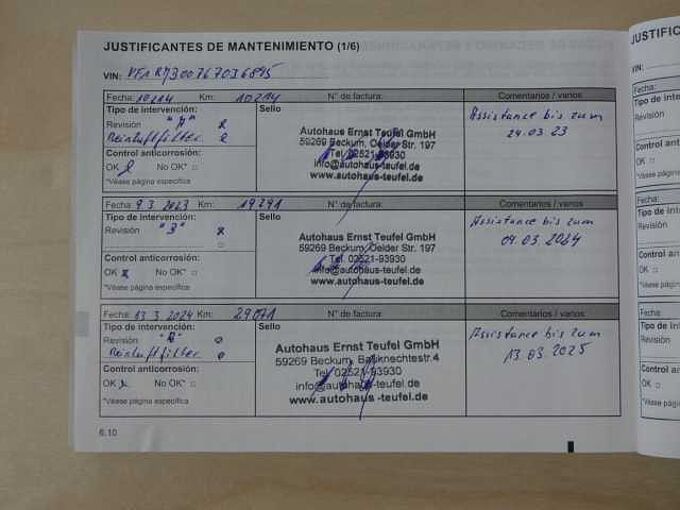 JUSTIFICANTES DE MANTENIMIENTO (1/6)
VIN:
Fecha: Km: 10214 N° de factura: Comentarios / varios
Tipo de intervención: Sello Assistance bis zum
Revisión "A" 24.03 23
Reinluftfilter
Autohaus Ernst Teufel GmbH
59269 Beckum, Oelder Str. 197
Tel. 02521-93930
info@autohaus-teufel.de
www.autohaus-teufel.de
Control anticorrosión:
OK No OK*
*Véase página específica
Fecha: 9.3 2023 Km: 19291 N° de factura: Comentarios / varios
Tipo de intervención: Sello Assistance bis zum
Revisión "B" x 09.03 2024
Autohaus Ernst Teufel GmbH
59269 Beckum, Oelder Str. 197
Tel. 02521-93930
info@autohaus-teufel.de
www.autohaus-teufel.de
Control anticorrosión:
OK x No OK*
*Véase página específica
Fecha: 13 3 2024 Km: 29071 N° de factura: Comentarios / varios
Tipo de intervención: Sello Assistance bis zum
Revisión 13 03 2025
Reinluftfilter
Autohaus Ernst Teufel GmbH
59269 Beckum,
Tel. 02521-93930
info@autohaus-teufel.de
www.autohaus-teufel.de
Control anticorrosión:
OK No OK*
*Véase página específica
6.10
JUSTIFIC
VIN:
Fecha:
Tipo de inte
Revisión
Control an
OK
*Véase págin
Fecha:
Tipo de in
Revisión
Control a
OK
*Véase pág
Fecha:
Tipo de
Revisión
Control
OK
*Véase p